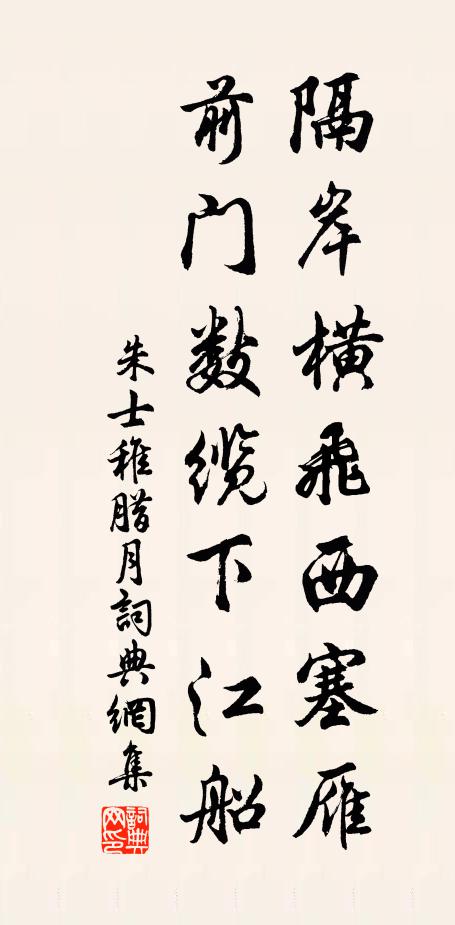 隔岸横飛西塞雁
前门数缆下江船
朱士稚腊月詞典網集
詞典网印